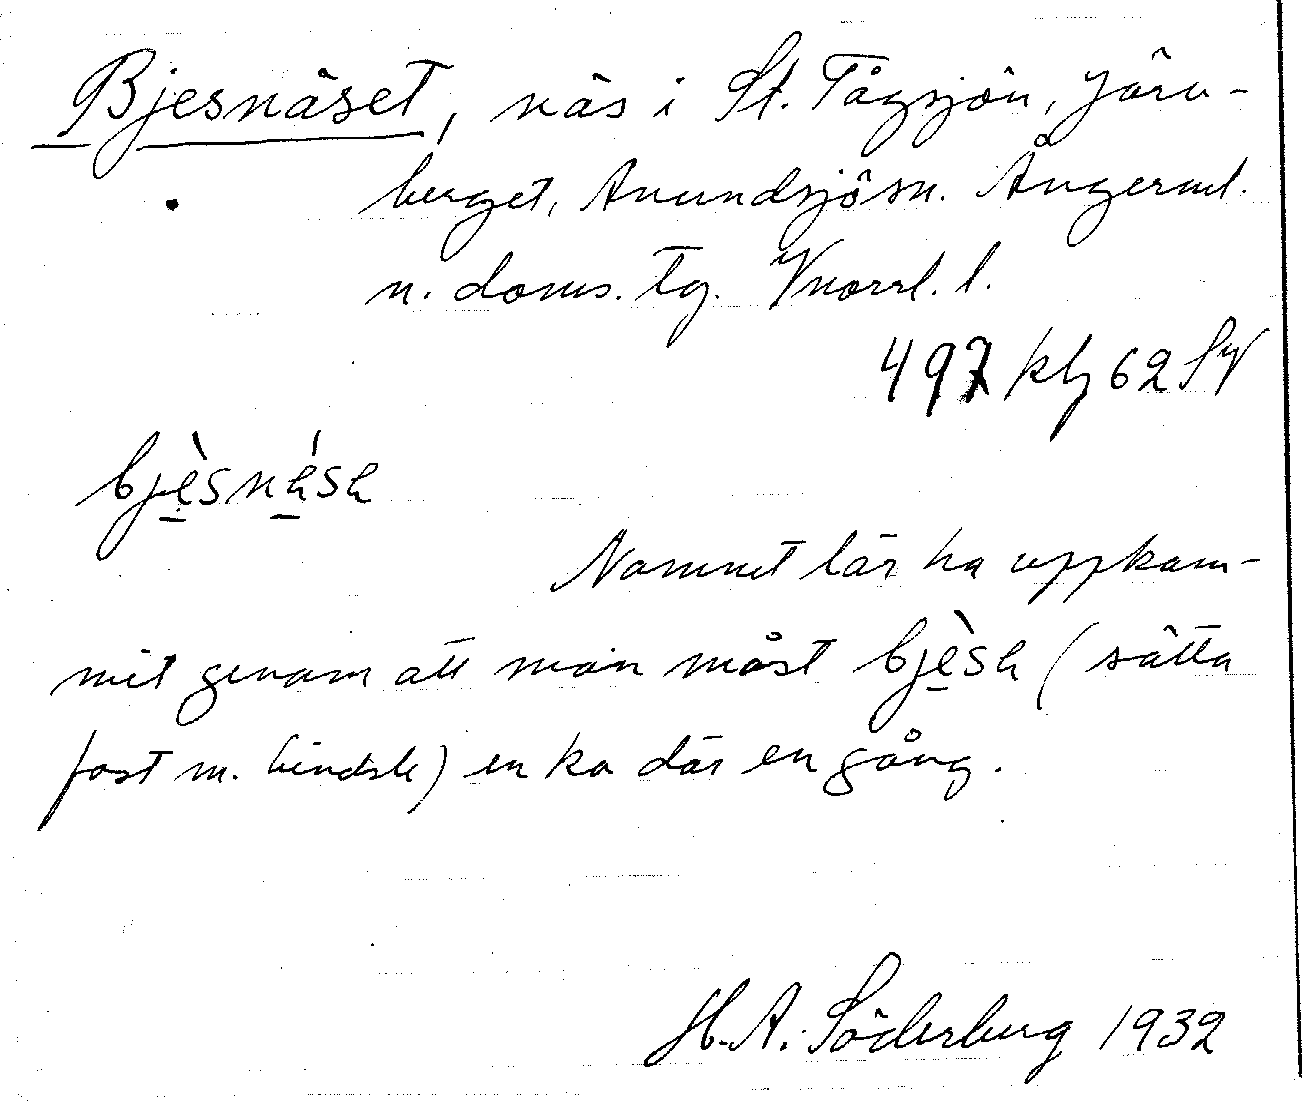 Bjesnäset, näs i St. Tågsjön, Järn-
berget, Anundsjösn. Ångerml.
n. doms. tg. Vnorrl. l.
497 klg 62 SV
bjèsnésa
Namnet lär ha uppkom-
mit genom att man måst bjèsa (sätta
fast m. bindsle) en ko där en gång.
H. A. Söderberg 1932